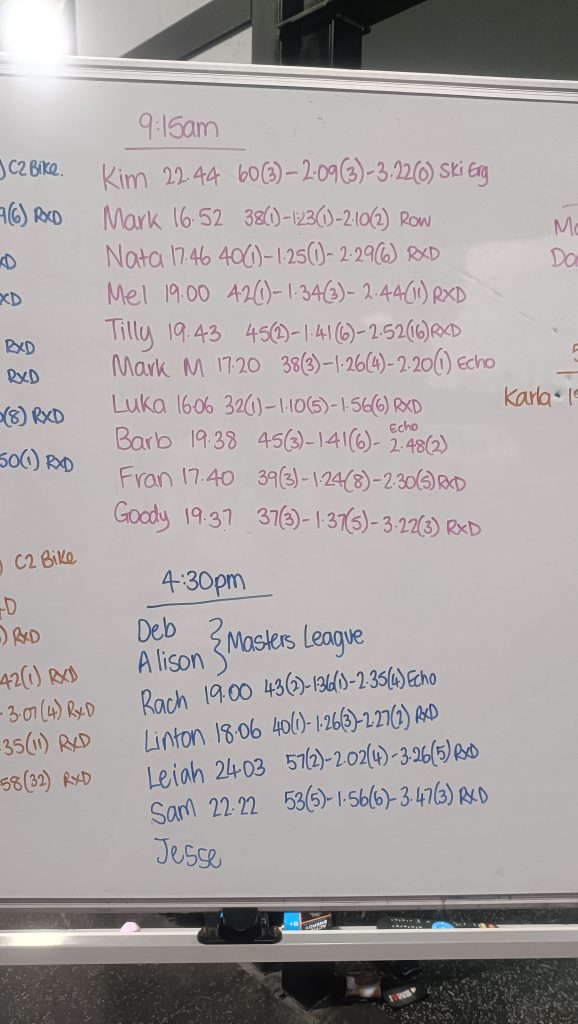 9:15am
Kim 22.44 60(3) - 2.09(3) - 3.22(0) Ski Erg
Mark 16.52 38(1) - 1.23(1) - 2.10(2) Row
Nata 17.46 40(1) - 1.25(1) - 2.29(6) RXD
Mel 19.00 42(1) - 1.34(3) - 2.44(11) RXD
Tilly 19.43 45(2) - 1.41(6) - 2.52(16) RXD
Mark M 17.20 38(3) - 1.26(4) - 2.20(1) Echo
Luka 16.06 32(1) - 1.10(5) - 1.56(6) RXD
Barb 19.38 45(3) - 1.41(6) - 2.48(2) Echo
Fran 17.40 39(3) - 1.24(8) - 2.30(5) RXD
Goody 19.37 37(3) - 1.37(5) - 3.22(3) RXD
4:30pm
Deb
Alison } Masters League
Rach 19.00 43(2) - 1.36(1) - 2.35(4) Echo
Linton 18.06 40(1) - 1.26(3) - 2.27(2) RXD
Leiah 24.03 57(2) - 2.02(4) - 3.26(5) RXD
Sam 22.22 53(5) - 1.56(6) - 3.47(3) RXD
Jesse
) C2 Bike.
9(6) RXD
XD
XD
RXD
RXD
(8) RXD
50(1) RXD
) C2 Bike
) RXD
42(1) RXD
- 3.07(4) RXD
35(11) RXD
58(32) RXD
Karla